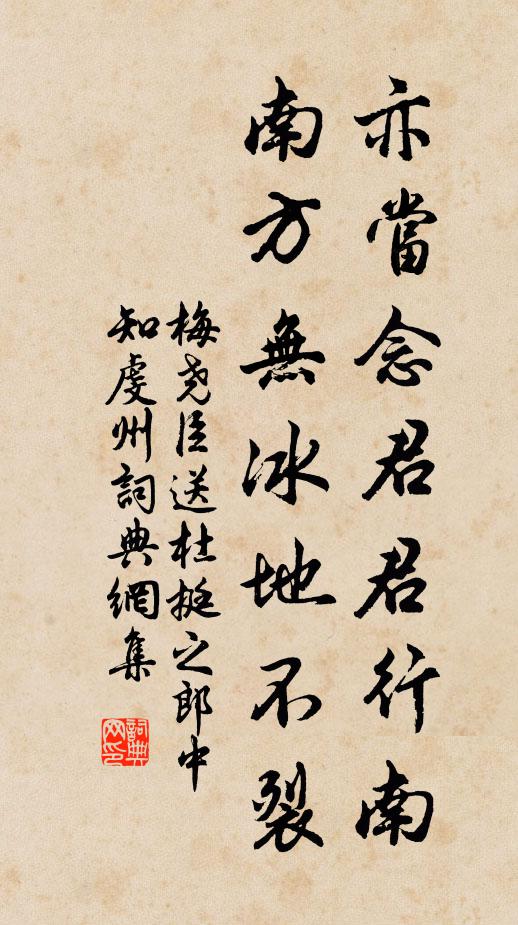 亦當念君君行南
南方無冰地不裂
梅尧臣送杜挺之郎中
知虔州詞典網集
詞典网印